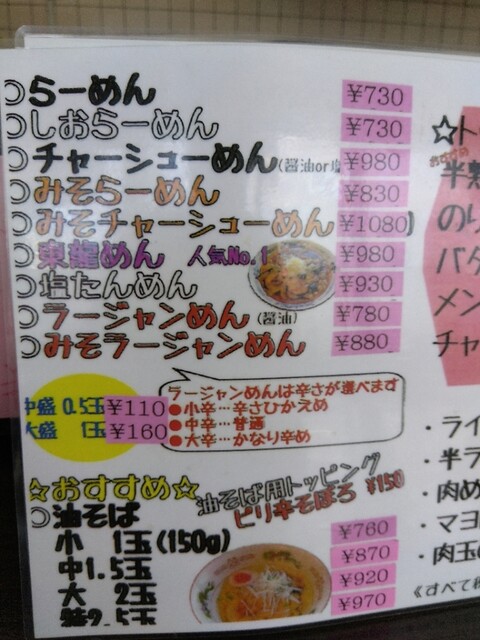 ○らーめん ¥730
○しおらーめん ¥730
○チャーシューめん(醤油or塩 ¥980
○みそらーめん ¥830
○みそチャーシューめん ¥1080
○東龍めん 人気No.1 ¥980
○塩たんめん ¥930
○ラージャンめん(醤油) ¥780
○みそラージャンめん ¥880
中盛 0.5玉 ¥110
大盛 1玉 ¥160
ラージャンめんは辛さが選べます
●小辛…辛さひかえめ
●中辛…普通
●大辛…かなり辛め
☆おすすめ☆
油そば用トッピング
ピリ辛そぼろ ¥150
○油そば
小 1玉(150g) ¥760
中1.5玉 ¥870
大 2玉 ¥920
特2.5玉 ¥970
☆ト
おすすめ
半熟
のり
バタ
メン
チャ
・ライ
・半ラ
・肉め
・マヨ
・肉玉め
《すべて